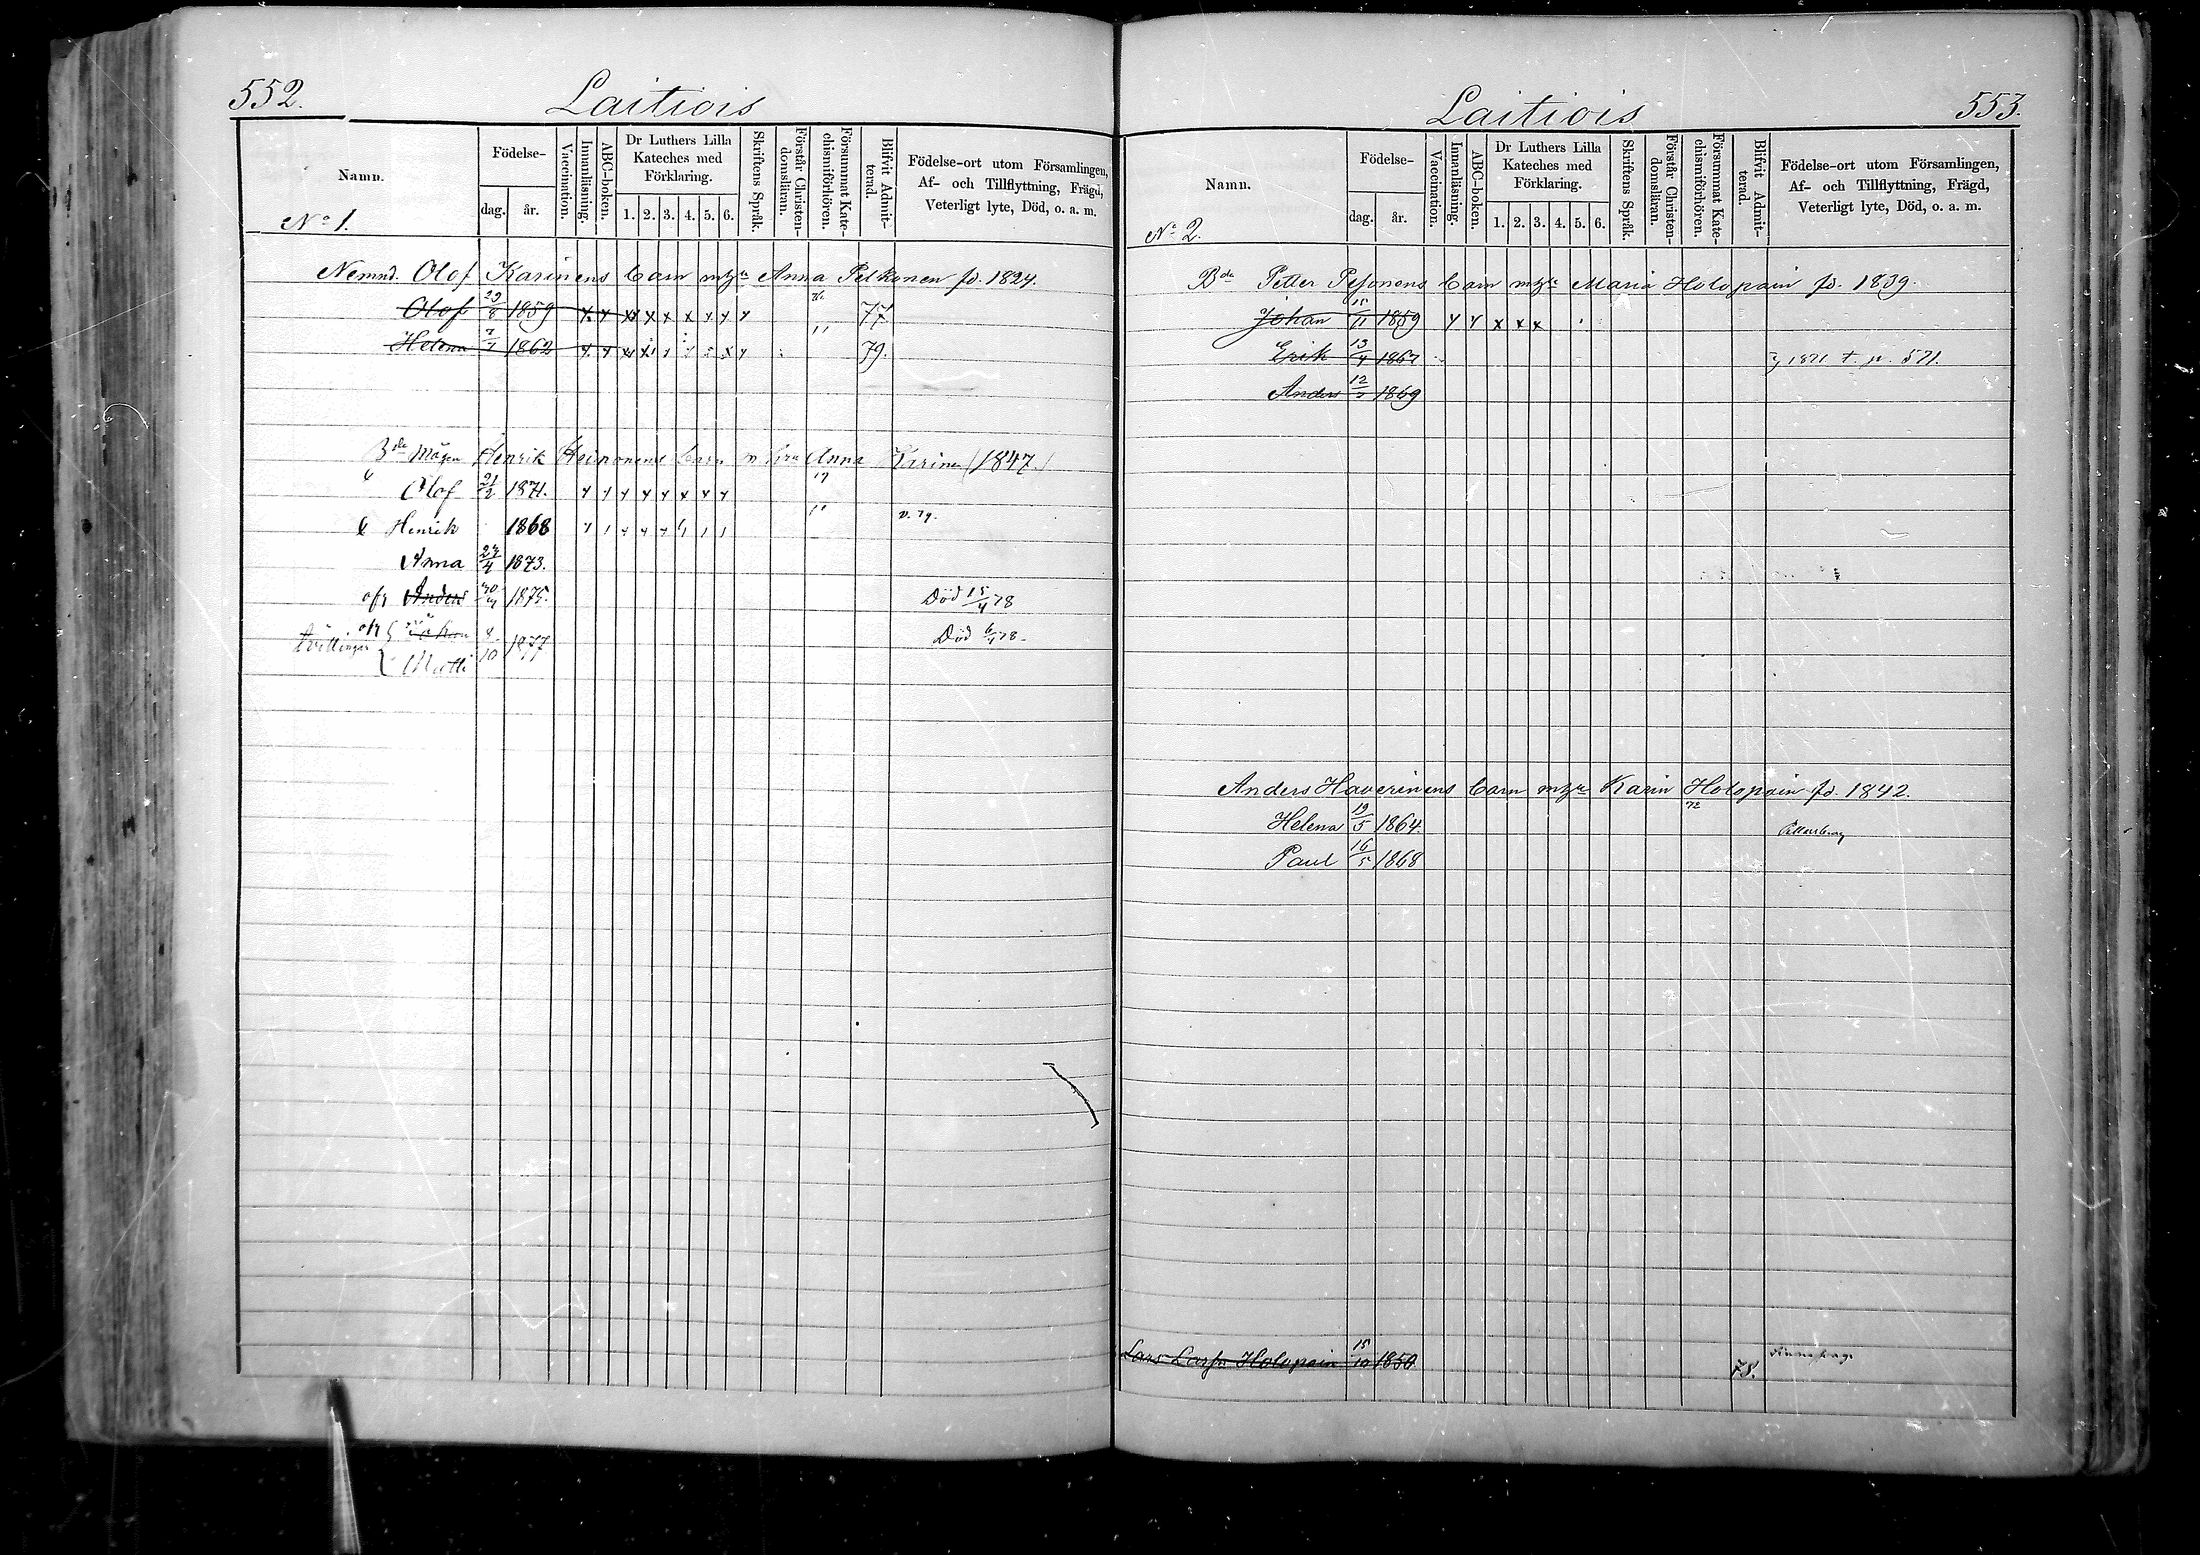 552.
Laitiois
Namn.
Födelse-
dag.
år.
Vaccination.
Innanläsning.
ABC-boken.
Dr Luthers Lilla
Kateches med
Förklaring.
1. 2. 3. 4. 5. 6.
Skriftens Språk.
Förstår Christen-
domsläran.
Försummat Kate-
chismiförhören.
Blifvit Admit-
terad.
Födelse-ort utom Församlingen,
Af- och Tillflyttning, Frägd,
Veterligt lyte, Död, o. a. m.
No 1.
Nemnd. Olof Karinens barn Anna Pelkonen fd. 1824.
Olof 1859 77
Helena 1862 79.
Mågen Henrik Heinonens barn Anna Karinen (1847.)
Olof 21/2 1871.
Henrik 1868
Anna 27/4 1873.
Anders 1875. Död 15/4 78
8/10 1877 Död 78
Tvillingar
Matti
553.
Laitiois
Namn.
Födelse-
dag.
år.
Vaccination.
Innanläsning.
ABC-boken.
Dr Luthers Lilla
Kateches med
Förklaring.
1. 2. 3. 4. 5. 6.
Skriftens Språk.
Förstår Christen-
domsläran.
Försummat Kate-
chismiförhören.
Blifvit Admit-
terad.
Födelse-ort utom Församlingen,
Af- och Tillflyttning, Frägd,
Veterligt lyte, Död, o. a. m.
No 2.
Bde Petter Pesonens barn Maria Holopain fd. 1839.
Johan 15/11 1859
Erik 13/4 1867 1871 t. p. 571.
Anders 1869
Anders Haverinens barn Karin Holopain fd. 1842.
72
Helena 19/5 1864
Paul 16/5 1868
Lars Holopain 15/10 1850 78.